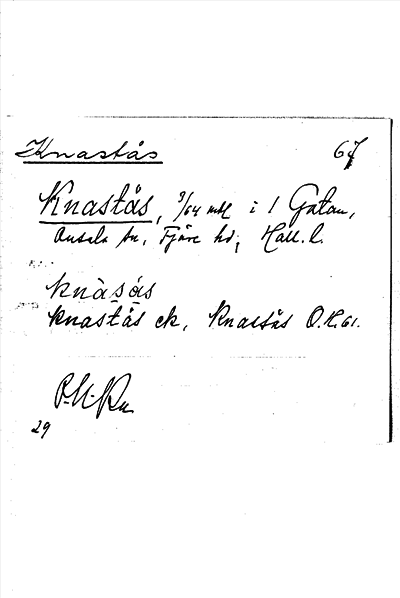 Knastås 67
Knastås, 3/64 mtl i 1 Gatan,
Onsala sn, Fjäre hd, Hall. l.
knàsás
knastås ek, Knastås O.K. 61.
29